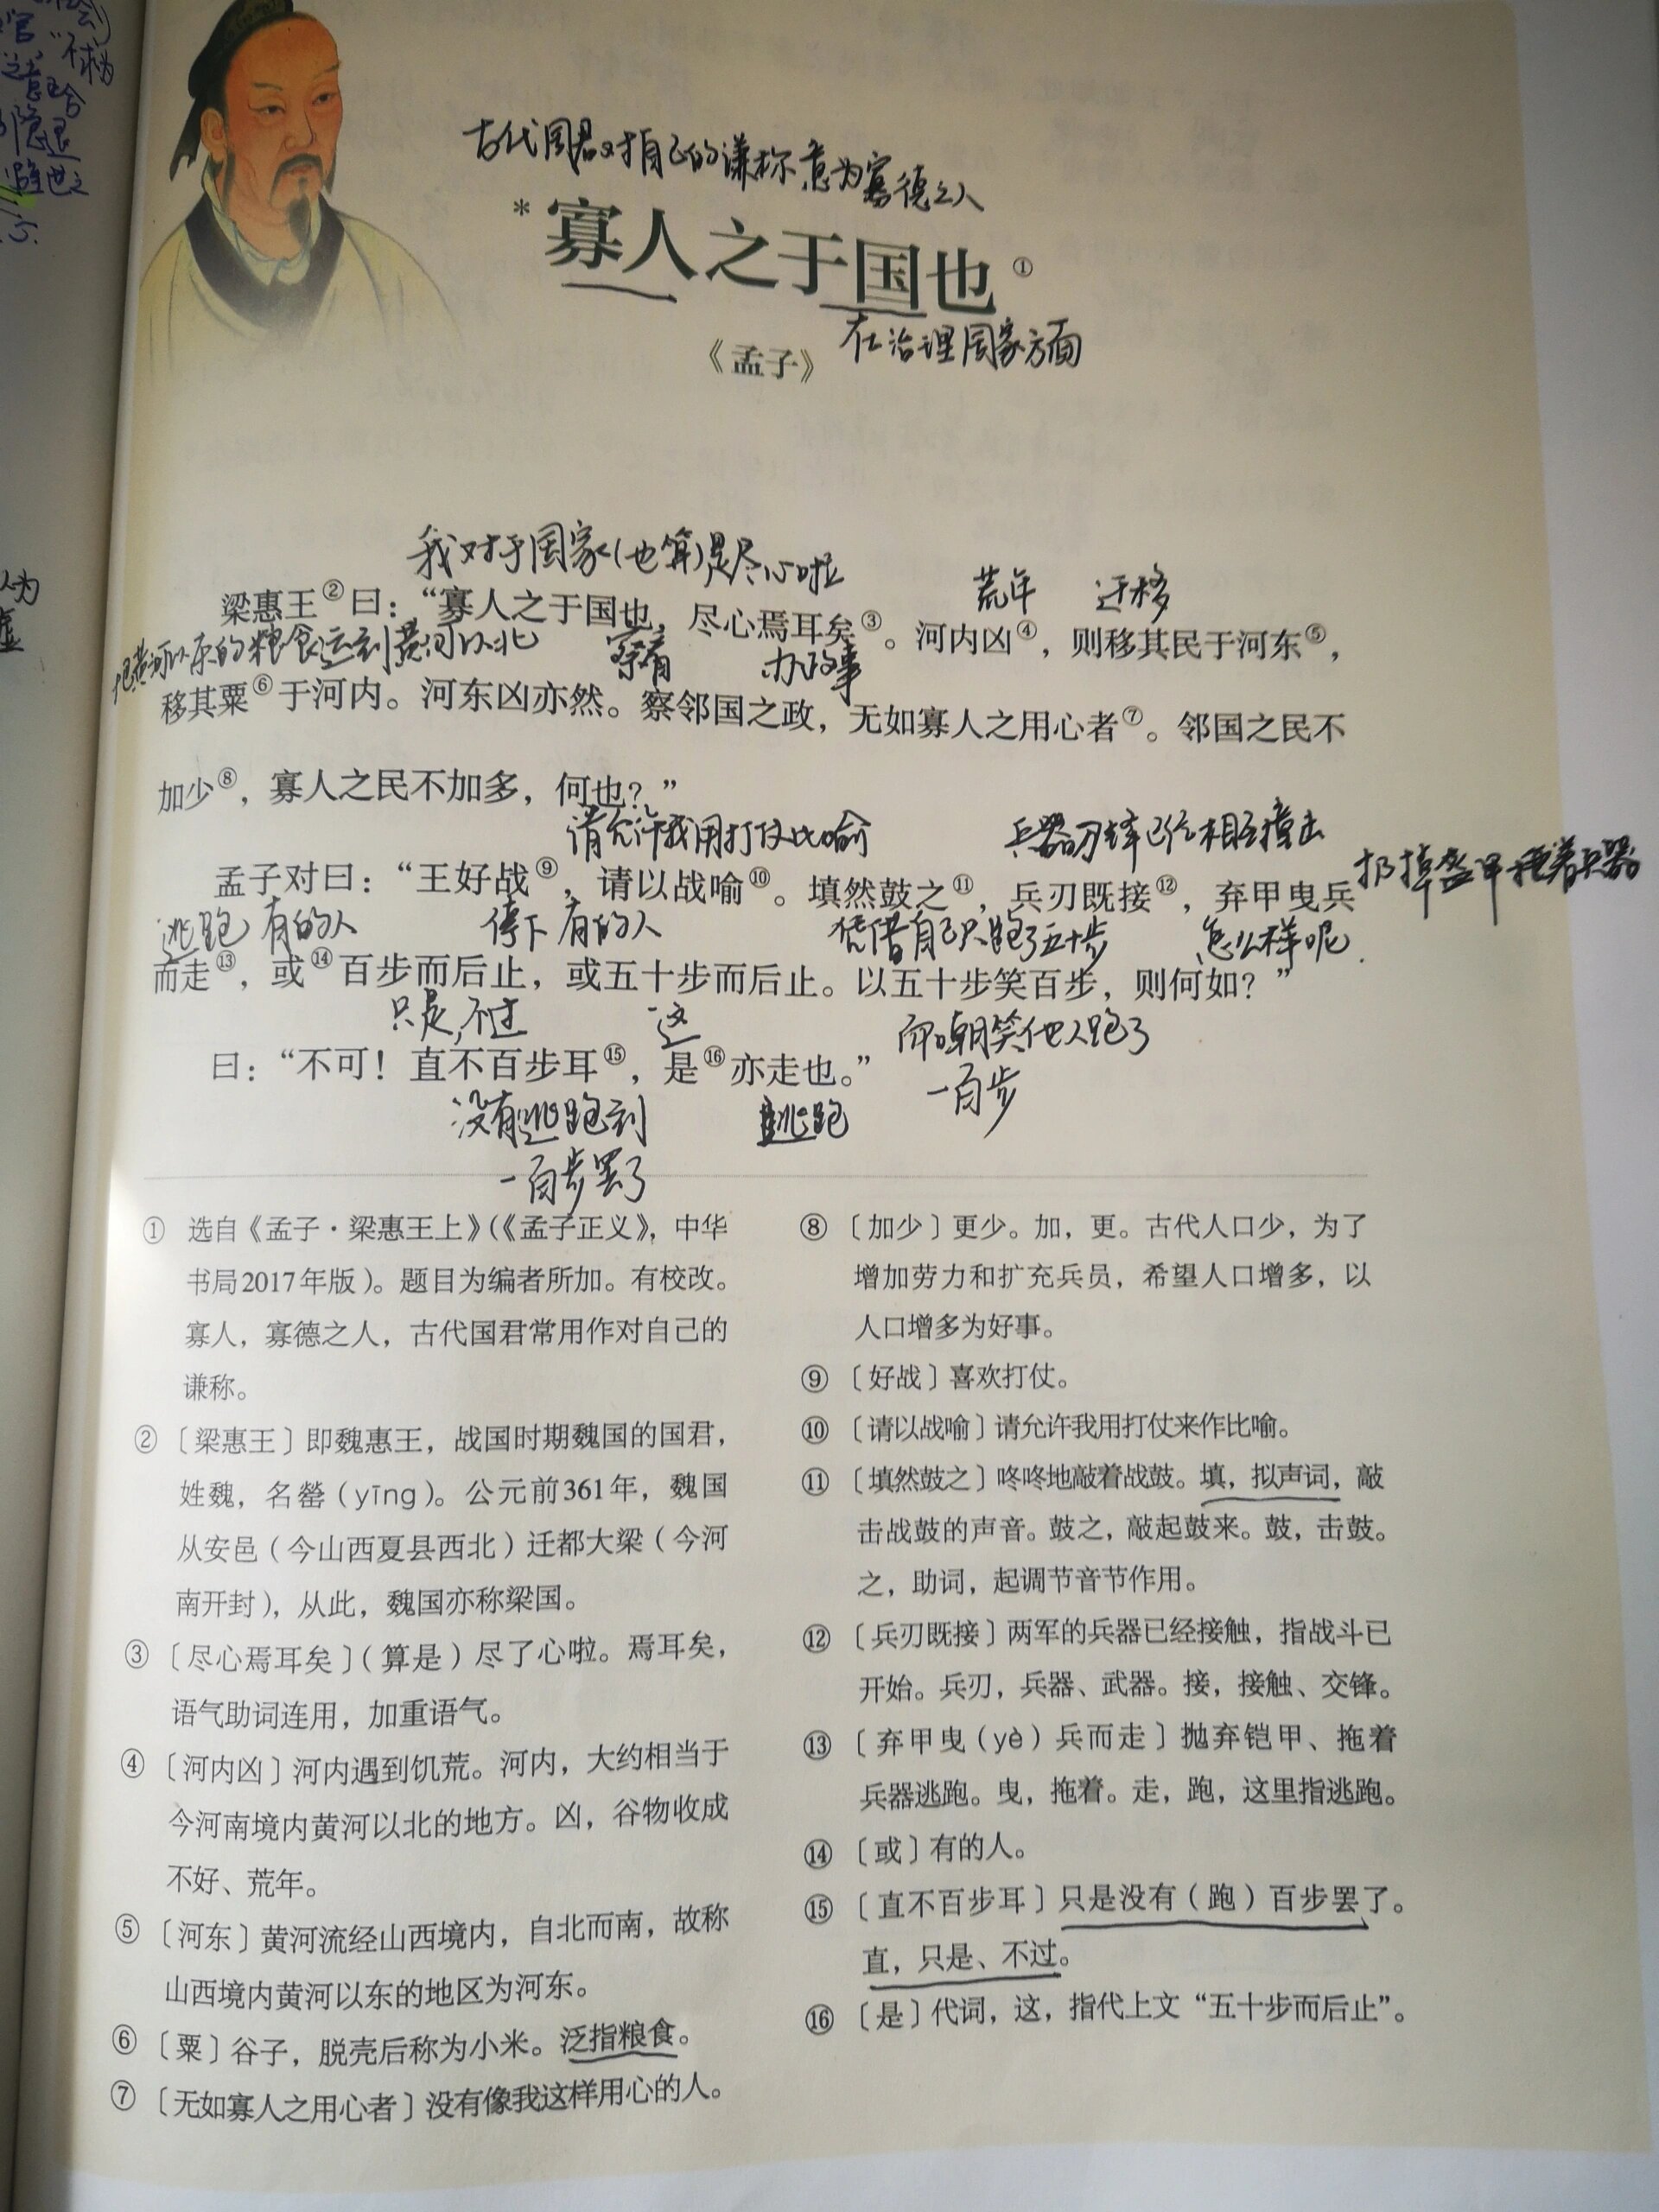 古代国君对自己的谦称意为寡德之人
*寡人之于国也①
《孟子》
在治理国家方面
我对于国家(也算)是尽心啦
荒年 迁移
梁惠王②曰：“寡人之于国也，尽心焉耳矣③。河内凶④，则移其民于河东⑤，
的粮食运到黄河以北 察看 办政事
移其粟⑥于河内。河东凶亦然。察邻国之政，无如寡人之用心者⑦。邻国之民不
加少⑧，寡人之民不加多，何也？”
请允许我用打仗比喻 兵器刃锋已经相互撞击
扔掉盔甲 着兵器
孟子对曰：“王好战⑨，请以战喻⑩。填然鼓之⑪，兵刃既接⑫，弃甲曳兵
逃跑 有的人 停下 有的人 凭借自己只跑了五十步 怎么样呢
而走⑬，或⑭百步而后止，或五十步而后止。以五十步笑百步，则何如？”
只是,不过 这 而嘲笑他人跑了
曰：“不可！直不百步耳⑮，是⑯亦走也。”
一百步
没有逃跑到 逃跑
一百步罢了
① 选自《孟子·梁惠王上》（《孟子正义》，中华
书局2017年版）。题目为编者所加。有校改。
寡人，寡德之人，古代国君常用作对自己的
谦称。
②〔梁惠王〕即魏惠王，战国时期魏国的国君，
姓魏，名罃（yīng）。公元前361年，魏国
从安邑（今山西夏县西北）迁都大梁（今河
南开封），从此，魏国亦称梁国。
③〔尽心焉耳矣〕（算是）尽了心啦。焉耳矣，
语气助词连用，加重语气。
④〔河内凶〕河内遇到饥荒。河内，大约相当于
今河南境内黄河以北的地方。凶，谷物收成
不好、荒年。
⑤〔河东〕黄河流经山西境内，自北而南，故称
山西境内黄河以东的地区为河东。
⑥〔粟〕谷子，脱壳后称为小米。泛指粮食。
⑦〔无如寡人之用心者〕没有像我这样用心的人。
⑧〔加少〕更少。加，更。古代人口少，为了
增加劳力和扩充兵员，希望人口增多，以
人口增多为好事。
⑨〔好战〕喜欢打仗。
⑩〔请以战喻〕请允许我用打仗来作比喻。
⑪〔填然鼓之〕咚咚地敲着战鼓。填，拟声词，敲
击战鼓的声音。鼓之，敲起鼓来。鼓，击鼓。
之，助词，起调节音节作用。
⑫〔兵刃既接〕两军的兵器已经接触，指战斗已
开始。兵刃，兵器、武器。接，接触、交锋。
⑬〔弃甲曳（yè）兵而走〕抛弃铠甲、拖着
兵器逃跑。曳，拖着。走，跑，这里指逃跑。
⑭〔或〕有的人。
⑮〔直不百步耳〕只是没有（跑）百步罢了。
直，只是、不过。
⑯〔是〕代词，这，指代上文“五十步而后止”。